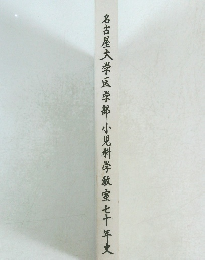 名古屋大学医学部小児科学教室七十年史